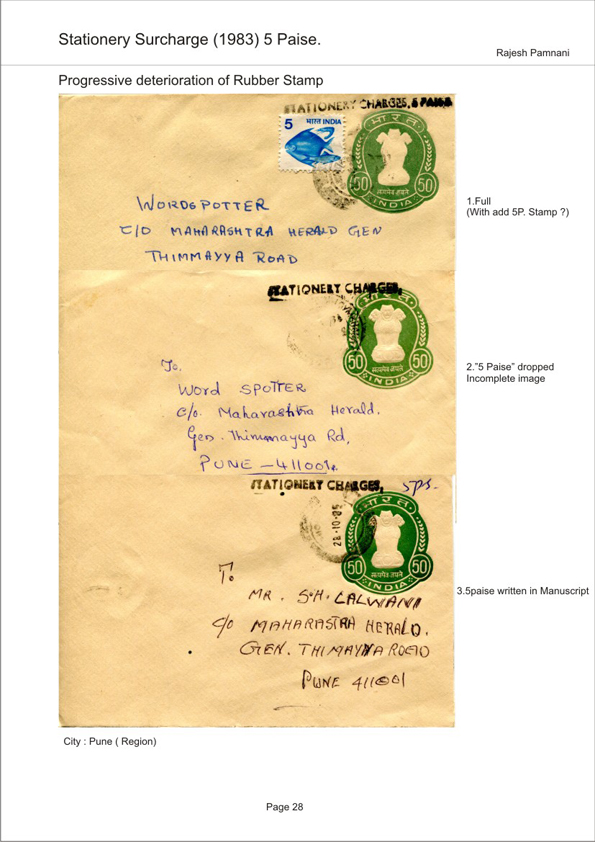 Stationery Surcharge (1983) 5 Paise.
Rajesh Pamnani
Progressive deterioration of Rubber Stamp
STATIONERY CHARGES, 5 PAISE
5 भारत INDIA
भारत
50 सत्यमेव जयते 50
INDIA
1.Full
(With add 5P. Stamp ?)
WORDSPOTTER
C/O MAHARASHTRA HERALD GEN
THIMMAYYA ROAD
STATIONERY CHARGES,
भारत
50 सत्यमेव जयते 50
INDIA
2."5 Paise" dropped
Incomplete image
To.
Word SPOTTER
c/o. Maharashtra Herald.
Gen. Thimmayya Rd,
PUNE - 411001.
STATIONERY CHARGES, 5ps.
भारत
28-10-85
50 सत्यमेव जयते 50
INDIA
3.5paise written in Manuscript
To
MR. S.H. LALWANI
C/o MAHARASTRA HERALD.
GEN. THIMAYYA ROAD
PUNE 411001
City : Pune ( Region)
Page 28